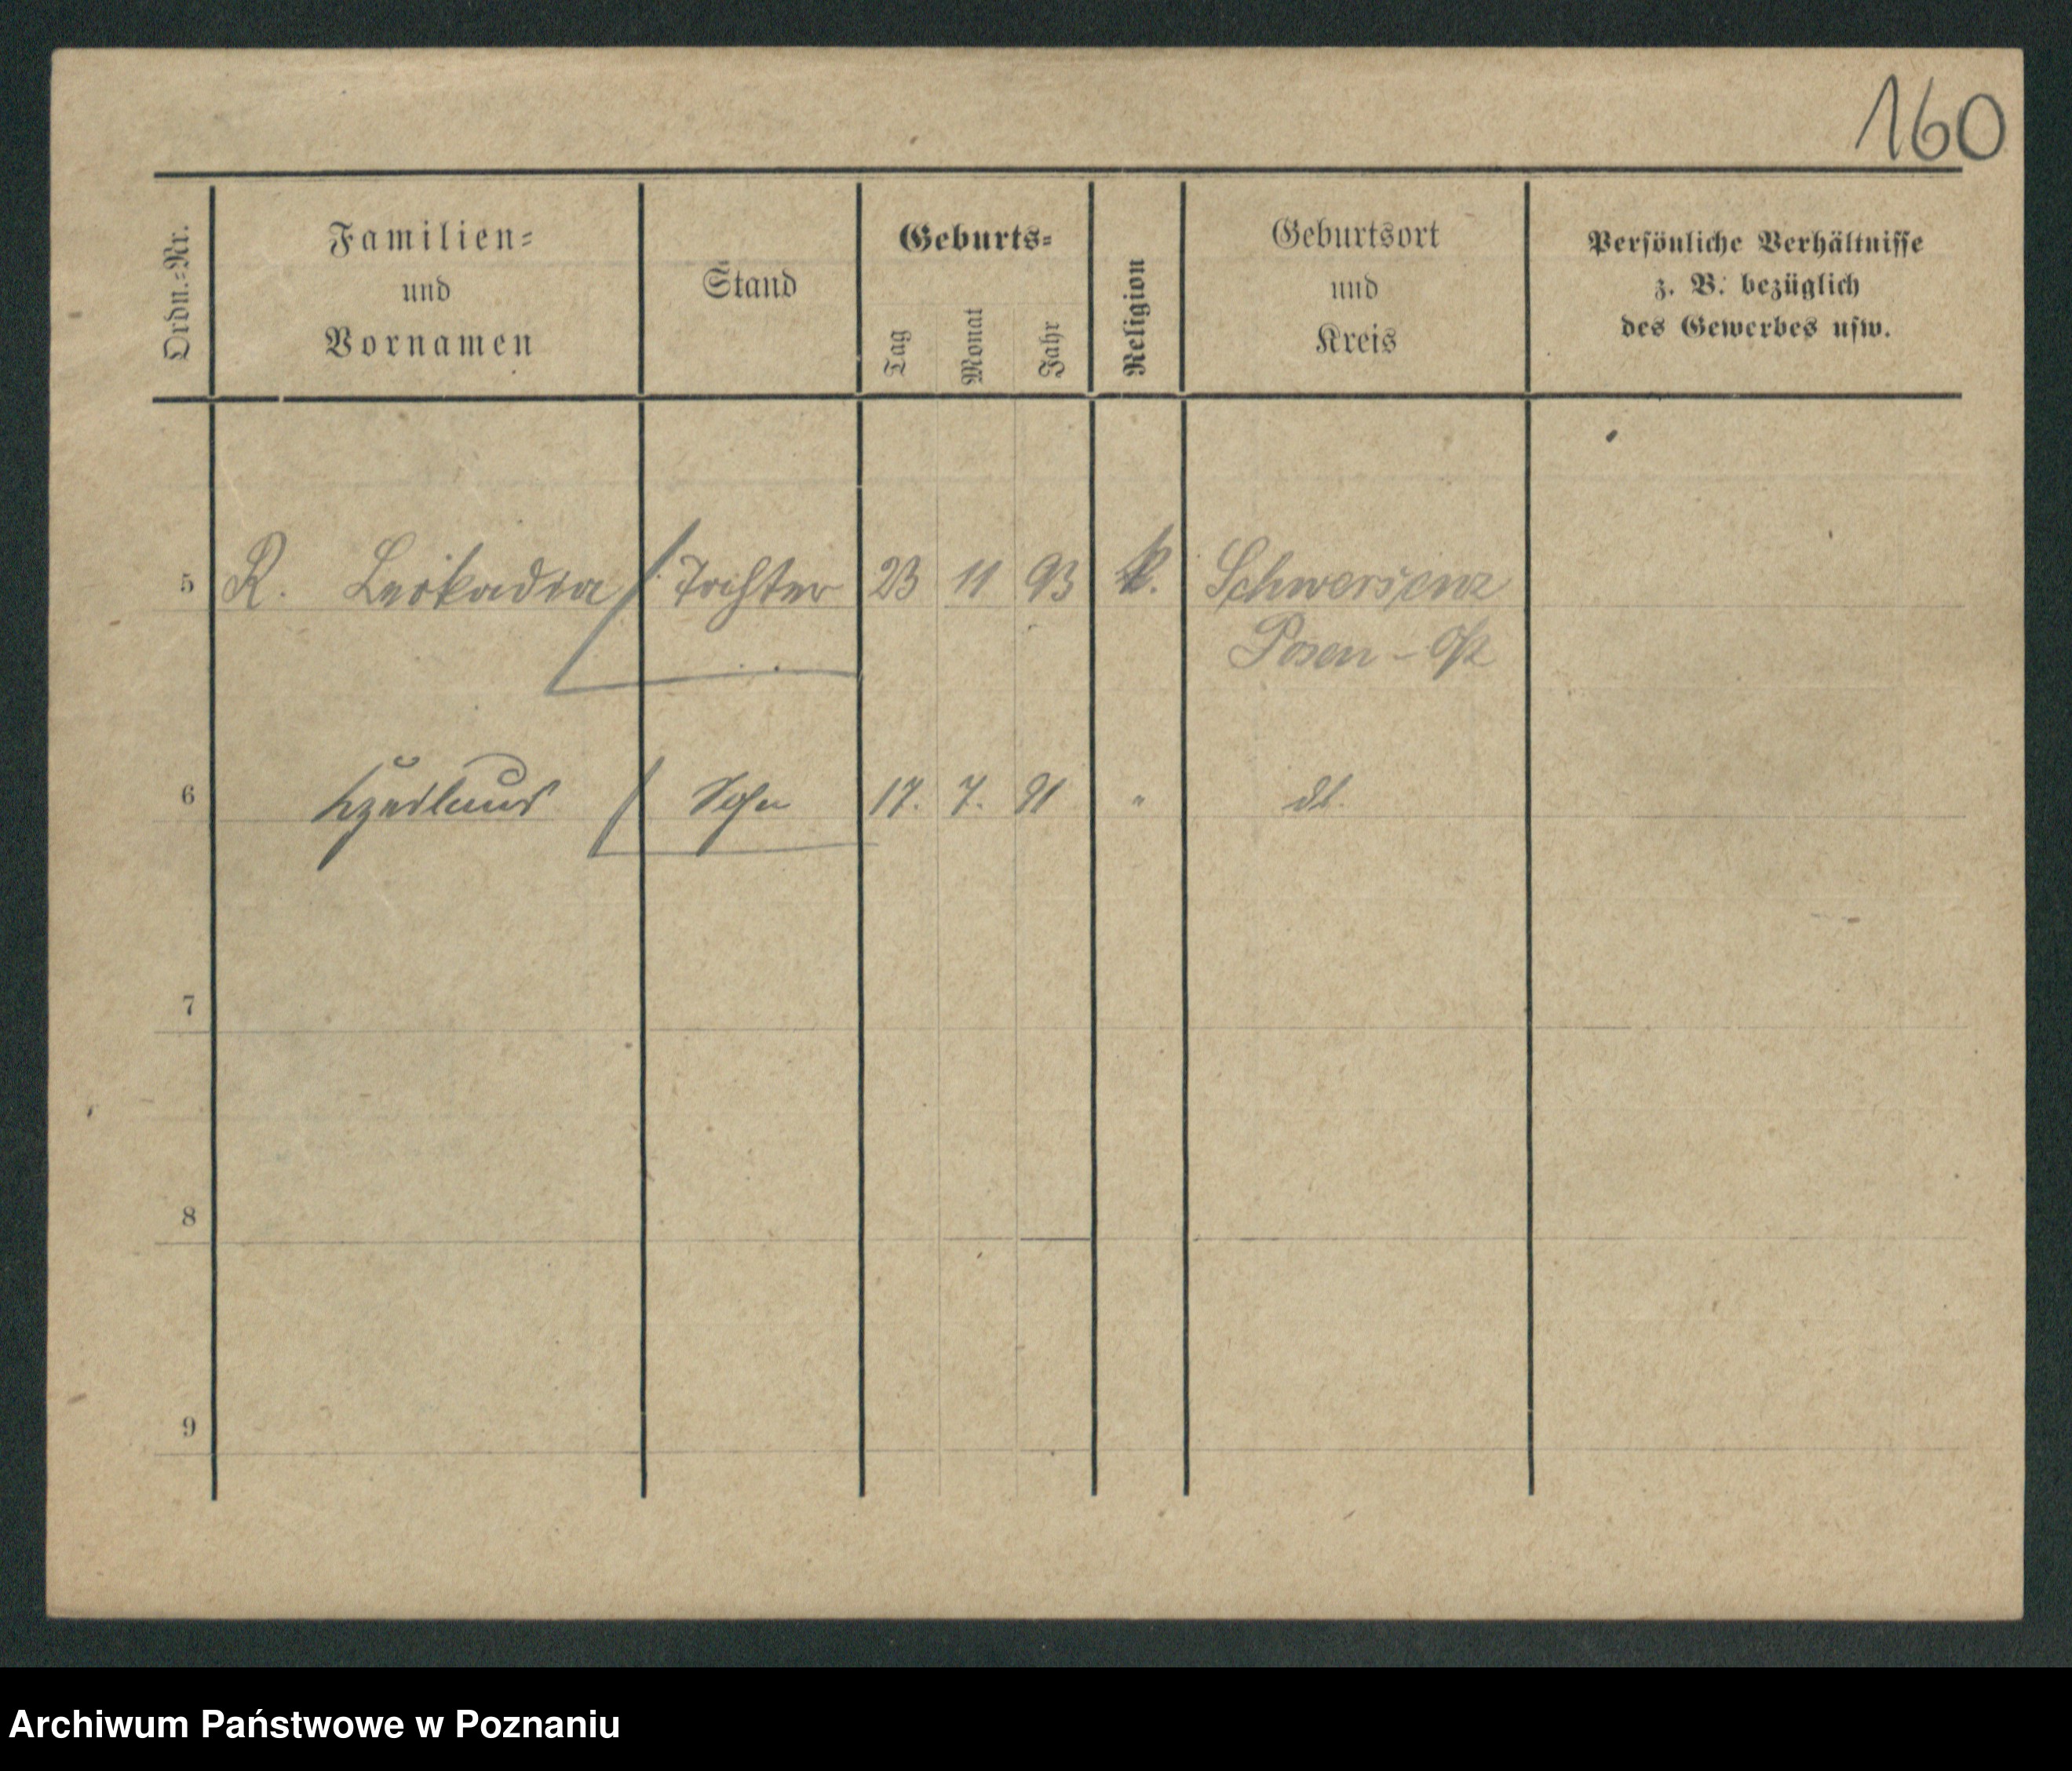 160
Ordn.-Nr.
Familien-
und
Vornamen
Stand
Geburts-
Tag
Monat
Jahr
Religion
Geburtsort
und
Kreis
Persönliche Verhältnisse
z. B. bezüglich
des Gewerbes usw.
5 R. Leokadia Tochter 23 11 93 k. Schwersenz
Posen - Ost
6 Sohn 17. 7. 91 "
7
8
9
Archiwum Państwowe w Poznaniu